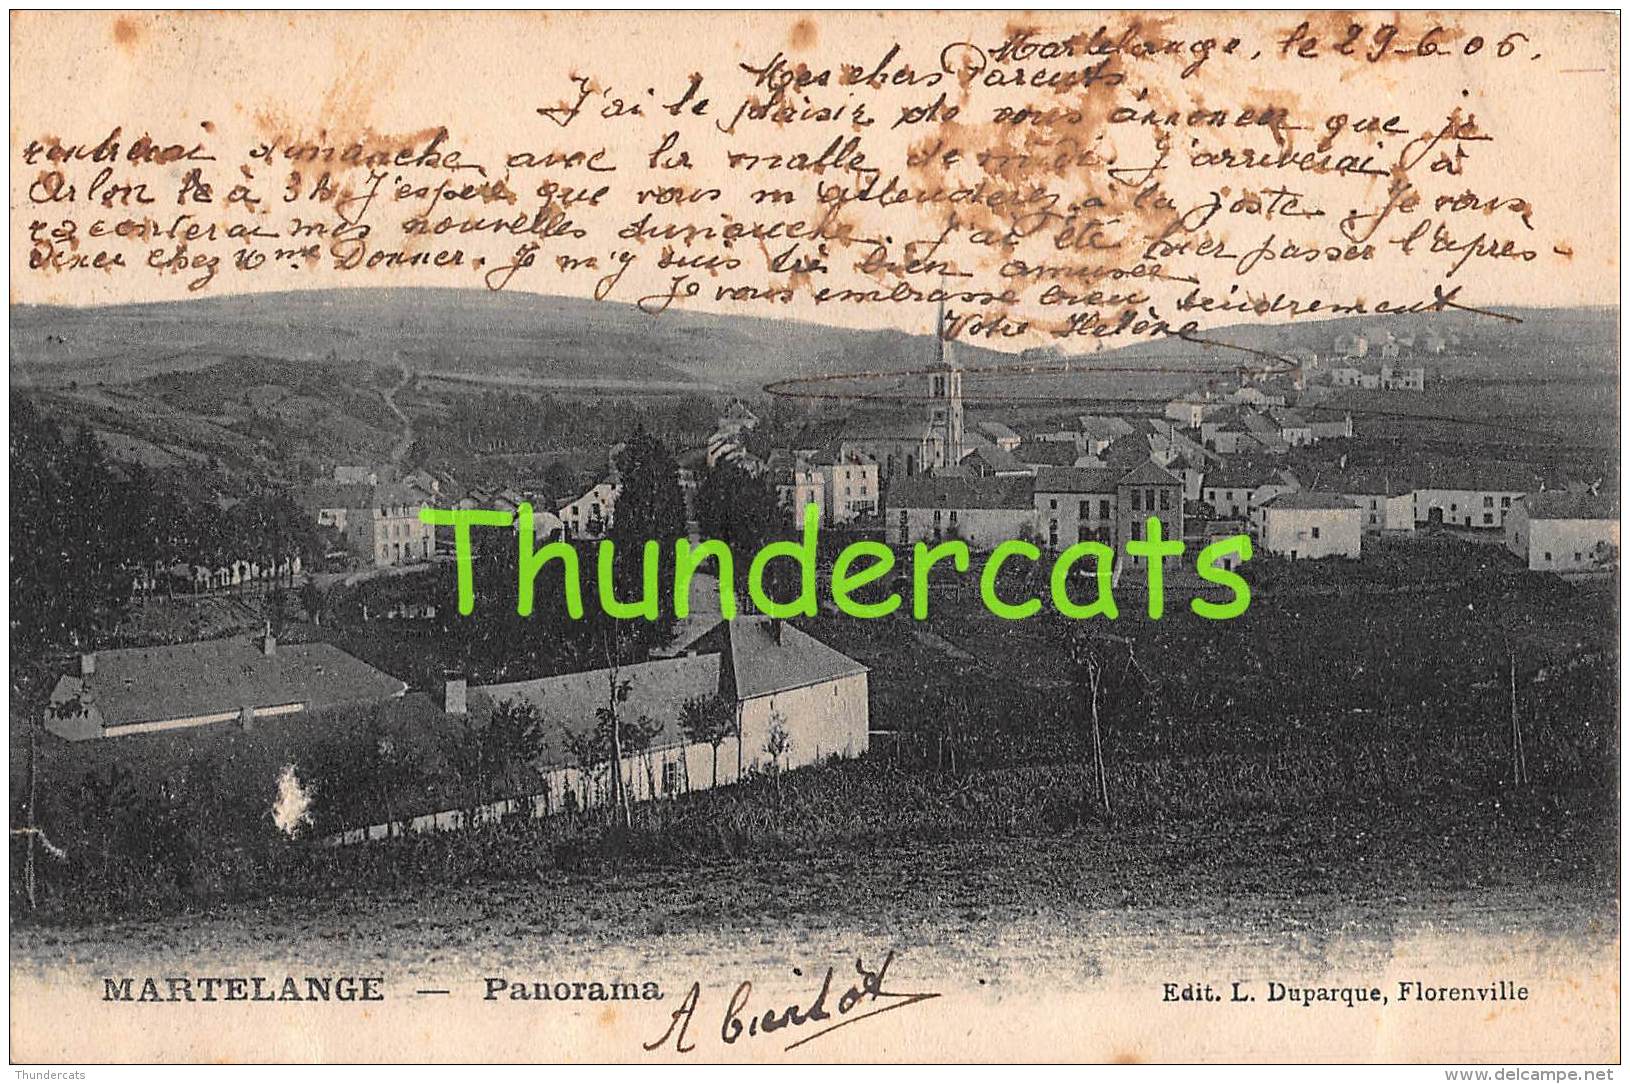 Martelange, le 29-6-06.
Mes chers Parents,
J'ai le plaisir de vous annoncer que je
rentrerai dimanche avec la malle de midi. J'arriverai à
Arlon à 3h. J'espère que vous m'attenderez à la poste. Je vous
raconterai mes nouvelles dimanche. J'ai été hier passer l'après-
diner chez Mme Donner. Je m'y suis très bien amusée.
Je vous embrasse bien tendrement
Votre Hélène
Thundercats
MARTELANGE — Panorama
A bientôt
Edit. L. Duparque, Florenville
Thundercats
delcampe.net